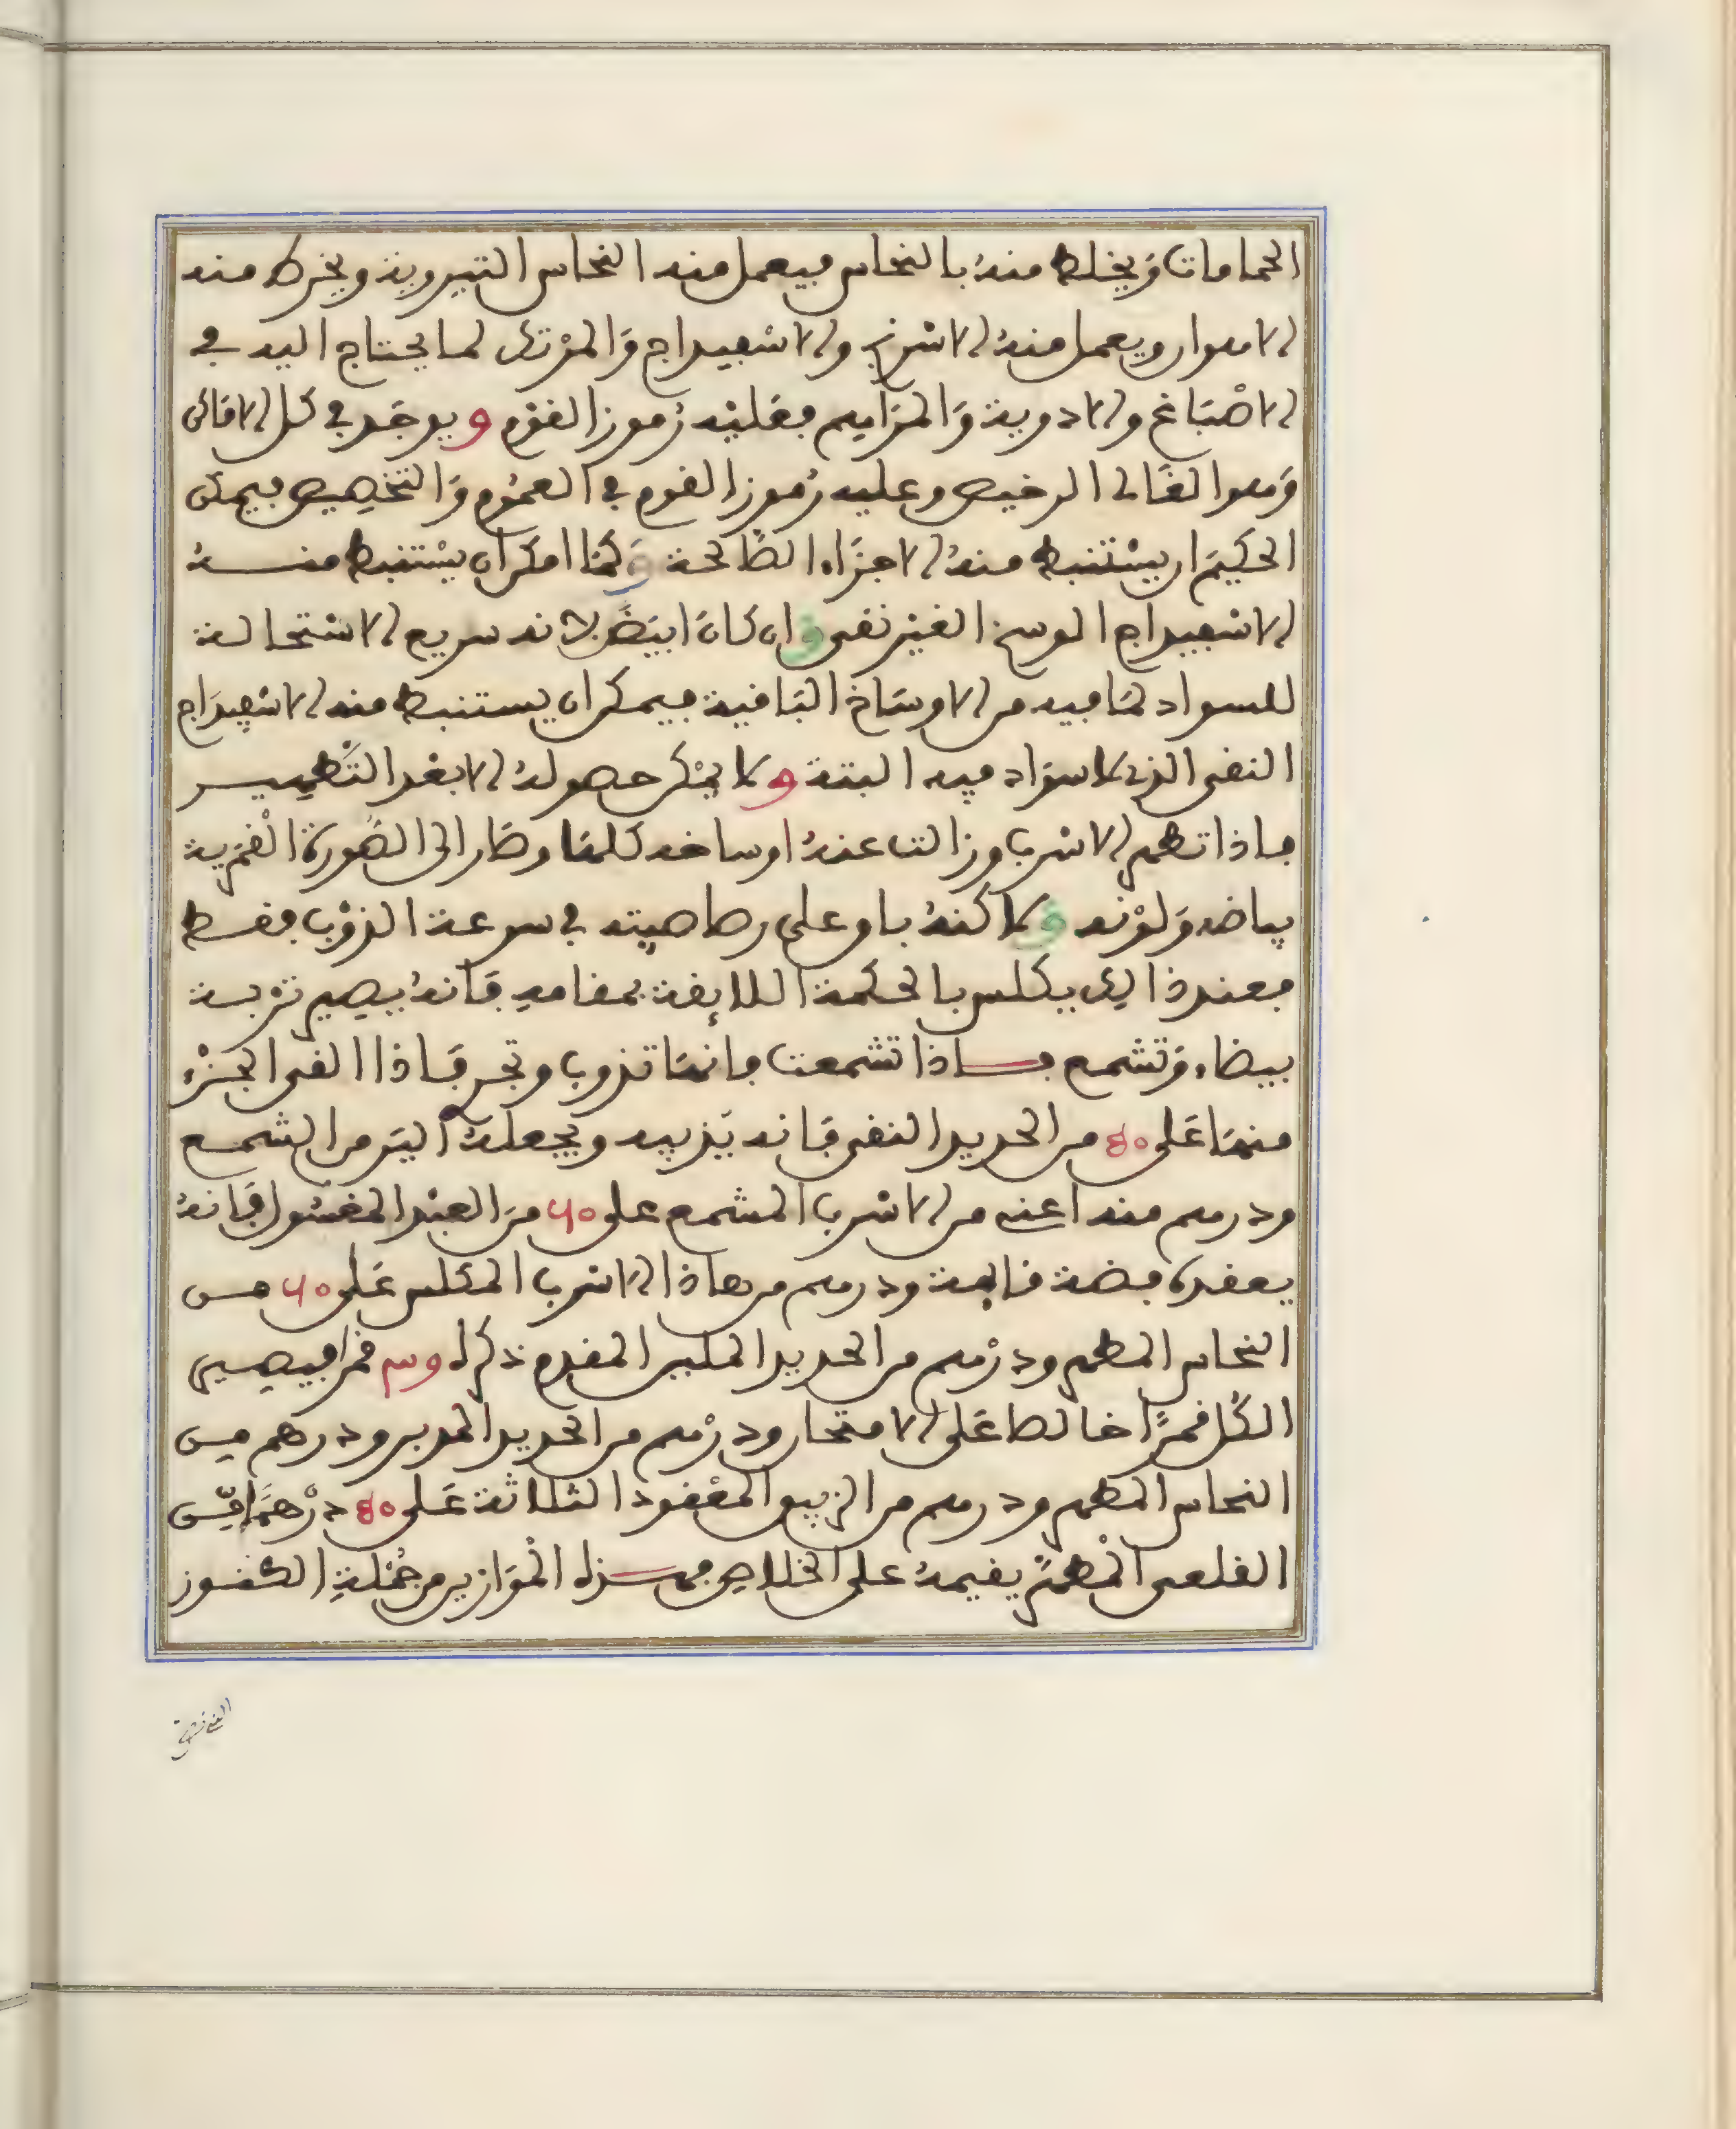 الحمامات وَيخلط منهُ بالنحاس فيعمل منه النحاس التبروية ويخرط منه
الاهوان ويعمل منهُ الاسْرنج والاسْفيداج وَالمرْتك لما يحتاج اليه في
الاصْبَاغ والادوية وَالمرَاهم فعَليْه رُموز القوْم و يوجَد في كل الافاق
وَهوا لغَالى الرخيص وعليه رُموز القوم في العمُوم وَالتخصِيص فيمكن
الحكيمَ ان يسْتنبط منهُ الاجزَاء الصَالحة وَكمَا امكن ان يسْتنبط منـــهُ
الاسْفيداج الوسخ الغيْر نقى وان كانَ ابيَض لانه سريع الاسْتحالة
للسواد لمَا فيه من الاوسَاخ البَاقية فيمكن ان يستنبط منه الاسْفيدَاج
النقى الذى لا سوَاد فيه البتة و لا يمْكن حصولهُ الا بعْد التَّطهيـــر
فاذا تطهر الاسْرب وزالت عنهُ اوساخه كلهَا وصَار الى الصُورة القمَرية
بياضه وَلوْنه ولاكنهُ باق على رصاصيته في سرعة الذوْب فقـط
فعند ذالك يكلس بالحكمة اللايقة بمقامه فَانهُ يصير ترْبـة
بيضاء وَتشمع فـــاذا تشمعت فانهَا تذوب وتجرى فَاذا القى الجـزْء
منهَا عَلى ٤٠ من الحديد النقى فَانه يَذ‍يبه ويجعلهُ اليَن من الشمـع
ودرهم منه اعنى من الاسْرب المشمع على ٦٠ منَ العبْد المغسُول فَانهُ
يعقده فضة قايمة ودرهم من هاذا الاسْرب المكلس عَلى ٦٠ مـن
النحاس المطهر ودرْهم من الحديد الملين المقدم ذكره و س قمرا فيصيـر
الكُل قمرًا خالصا عَلى الامتحان ودرْهم من الحديد المدبر ودرهم مـن
النحاس المطهر ودرهم من الزيبق المعْقود الثلاثة عَلى ٤٠ درْهمًا مِّن
القلعى المُطهَّر يقيمهُ على الخلاص فهـــذه الموَازين من جُمْلةِ الكـنـوز